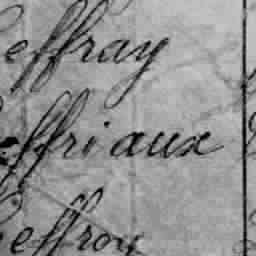 effray
effriaux
effroy